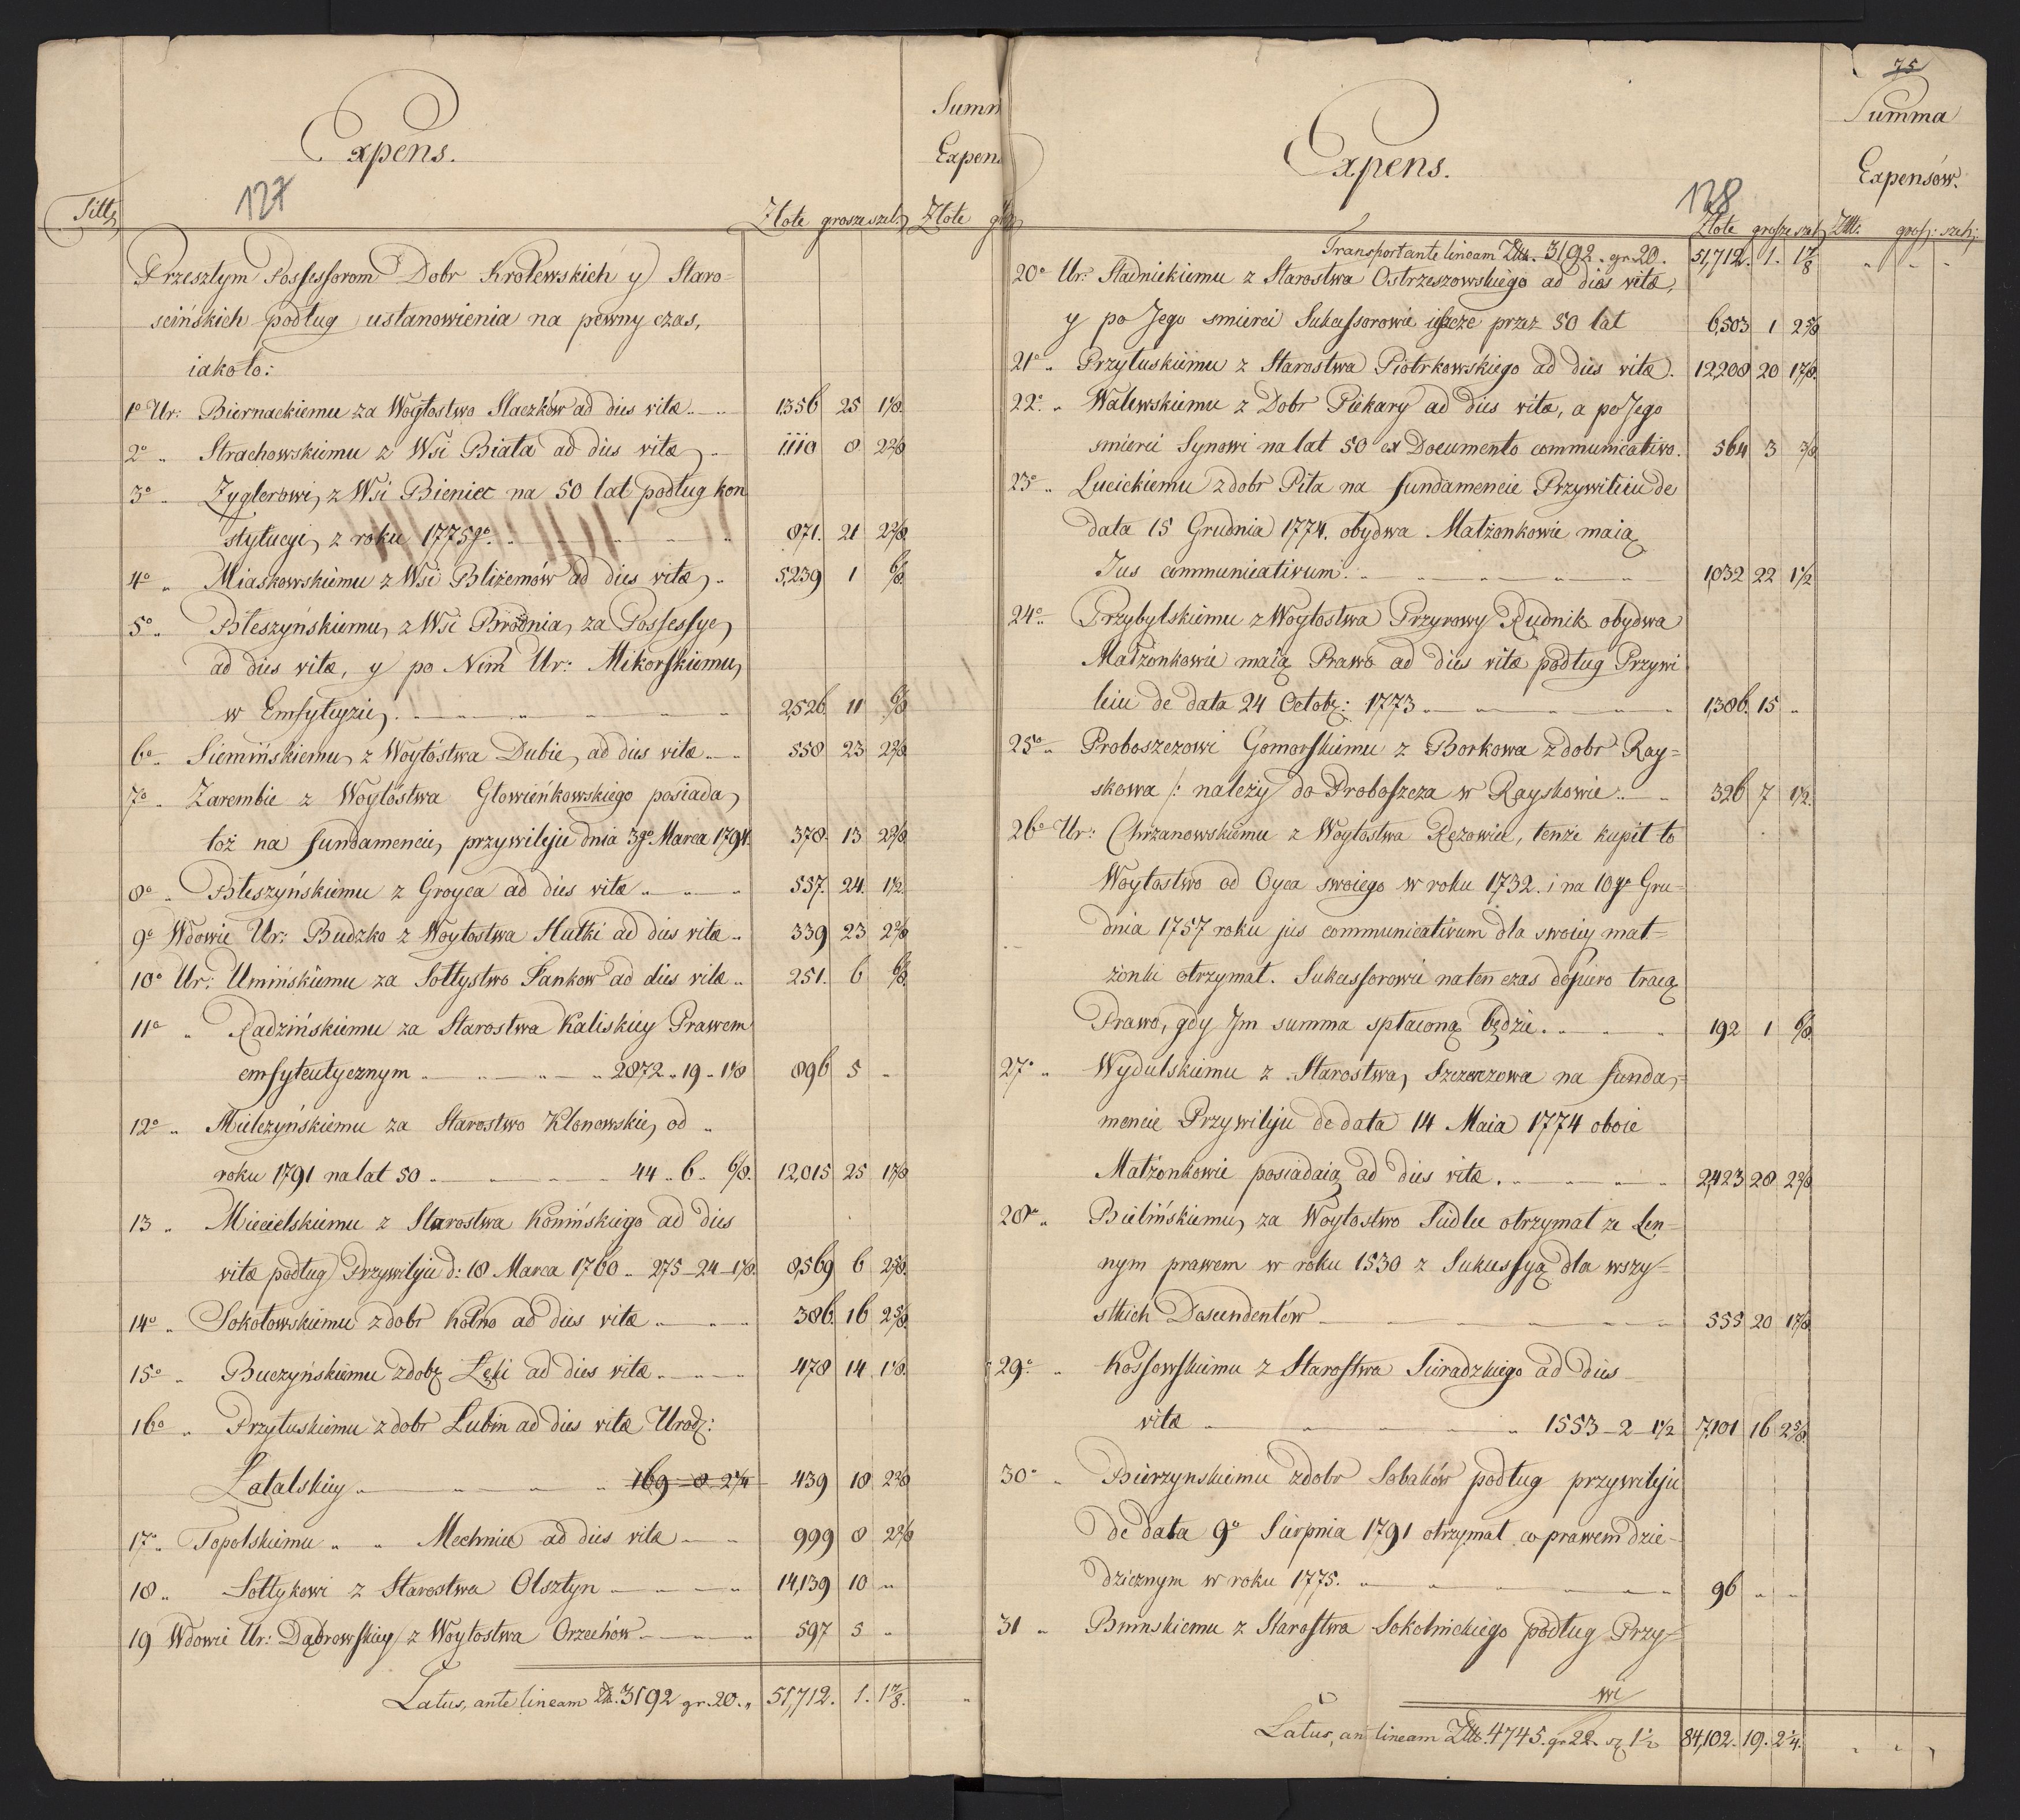 Expens.
Summ
Expen
127
Titt
Złote grosze szel:
Złote g
Przeszłym Possessorom Dobr Krolewskich y Staro=
scińskich podług ustanowienia na pewny czas,
iako to:
1º Ur: Biernackiemu za Woytostwo Staczków ad dies vitæ 1356 25 1 1/8.
2º " Strachowskiemu z Wsi Biała ad dies vitæ 1,110 8 2 2/8
3º " Zyglerowi, z Wsi Bieniec na 50 lat podług kon
stytucyi, z roku 1775go. 871. 21 2 2/8.
4º " Miaskowskiemu z Wsi Bliżemów ad dies vitæ 5,239 1 6/8
5º " Błeszyńskiemu, z Wsi Brodnia, za Possessye,
ad dies vitæ, y po Nim Ur: Mikorskiemu,
w Emfyteyzie, 2,526. 11 6/8
6º " Siemińskiemu, z Woytóstwa Dubie, ad dies vitæ 550 23 2 2/8
7º " Zarembie z Woytóstwa Głowieńkowskiego posiada,
toż na fundamencie, przywileju dnia 3go Marca 1794. 378. 13 2 2/8.
8º " Błeszyńskiemu z Groyca ad dies vitæ 557. 24. 1 1/2.
9º Wdowie Ur: Budzko z Woytostwa Hutki ad dies vitæ 339 23 2 2/8
10º Ur: Umińskiemu za Sołtystwo Łankow ad dies vitæ 251. 6 6/8.
11º " Radzińskiemu za Starostwa Kaliskiey Prawem
emfyteutycznym 2872 " 19 " 1 1/8 896 5 "
12º " Mielczyńskiemu za Starostwo Klonowskie, od "
roku 1791 na lat 50 44 " 6 " 6/8. 12,015 25 1 7/8
13 " Miecielskiemu z Starostwa Konińskiego ad dies
vitæ podług Przywileju d: 18 Marca 1760 " 275 – 24 – 1 7/8. 8,569 6 2 5/8.
14º " Sokołowskiemu z dobr Kolno ad dies vitæ 386. 16 2 5/8.
15º " Buczyńskiemu z dobr Łęki ad dies vitæ 478 14 1 1/8.
16º " Przyłuskiemu z dobr Lubin ad dies vitæ Urodz:
Łatalskiey 169 – 8 2 1/4 439 18 2 2/8
17º " Topolskiemu " " Mechnice ad dies vitæ 999 8 2 2/8
18 " Sołtykowi z Starostwa Olsztyn 14,139 10 "
19 Wdowie Ur: Dąbrowskiey z Woytostwa Orzechów 597 5 "
Latus, ante lineam Złt. 3192 gr. 20. " 51,712. 1. 1 7/8.
75
Expens.
Summa
Expensów.
128
Złote grosze szel. Złt: grosz: szel:
Transport ante lineam Złt. 3192. gr. 20. 51,712. 1. 1 7/8
20º Ur: Stadnickiemu z Starostwa Ostrzeszowskiego ad dies vitæ,
y po Jego smierci Sukcessorowie ieszcze przez 50 lat 6,503 1 2 5/8
21º " Przyłuskiemu z Starostwa Piotrkowskiego ad dies vitæ. 12,208 20 1 7/8.
22º " Walewskiemu z Dobr Piekary ad dies vitæ, a po Jego
smierci Synowi na lat 50 ex Documento communicativo. 564 3 3/8
23º " Łucickiemu z dobr Piła na fundamencie Przywileiu de
data 15 Grudnia 1774. obydwa Małżonkowie maią
Jus communicativum. 1,032 22 1 1/2
24º " Przybylskiemu z Woytostwa Przyrowy Rudnik obydwa
Małżonkowie maią Prawo ad dies vitæ podług Przywi
leiu de data 24 Octobr: 1773 1,386. 15 "
25º " Proboszczowi Gomorskiemu z Borkowa z dobr Ray=
skowa /: należy do Proboszcza w Rayskowie 326 7 1 1/2.
26º Ur: Chrzanowskiemu z Woytostwa Ręzowie, tenże kupił to
Woytostwo od Oyca swoiego w roku 1732. i na 10go Gru=
dnia 1757 roku jus communicativum dla swoiey mał=
żonki otrzymał. Sukcessorowie na ten czas dopiero tracą
Prawo, gdy Jm summa spłaconą będzie. 192 1 6/8.
27º " Wydulskiemu z Starostwa, Szczerczowa na funda,=
mencie Przywileju de data 14 Maia 1774 oboie
Małżonkowie posiadaią ad dies vitæ. 2,423 28 2 2/8
28º " Bielińskiemu, za Woytostwo Siedlce otrzymał ze Len=
nym prawem w roku 1530 z Sukcessyą dla wszy=
stkich Descendentów 555 20 1 7/8
29º " Kossowskiemu z Starostwa Sieradzkiego ad dies
vitæ " 1553 – 2 – 1 1/2 7,101 16 2 5/8.
30º " Bierzynskiemu z dobr Sobaków podług przywileju
de data 9º Sierpnia 1791 otrzymał co prawem dzie=
dzicznym w roku 1775. 96 " "
31 " Bninskiemu z Starostwa Sokolnickiego podług Przy=
wi
Latus, an lineam Złt. 4745. gr 22. sz 1 1/2 84,102. 19. 2 1/4.